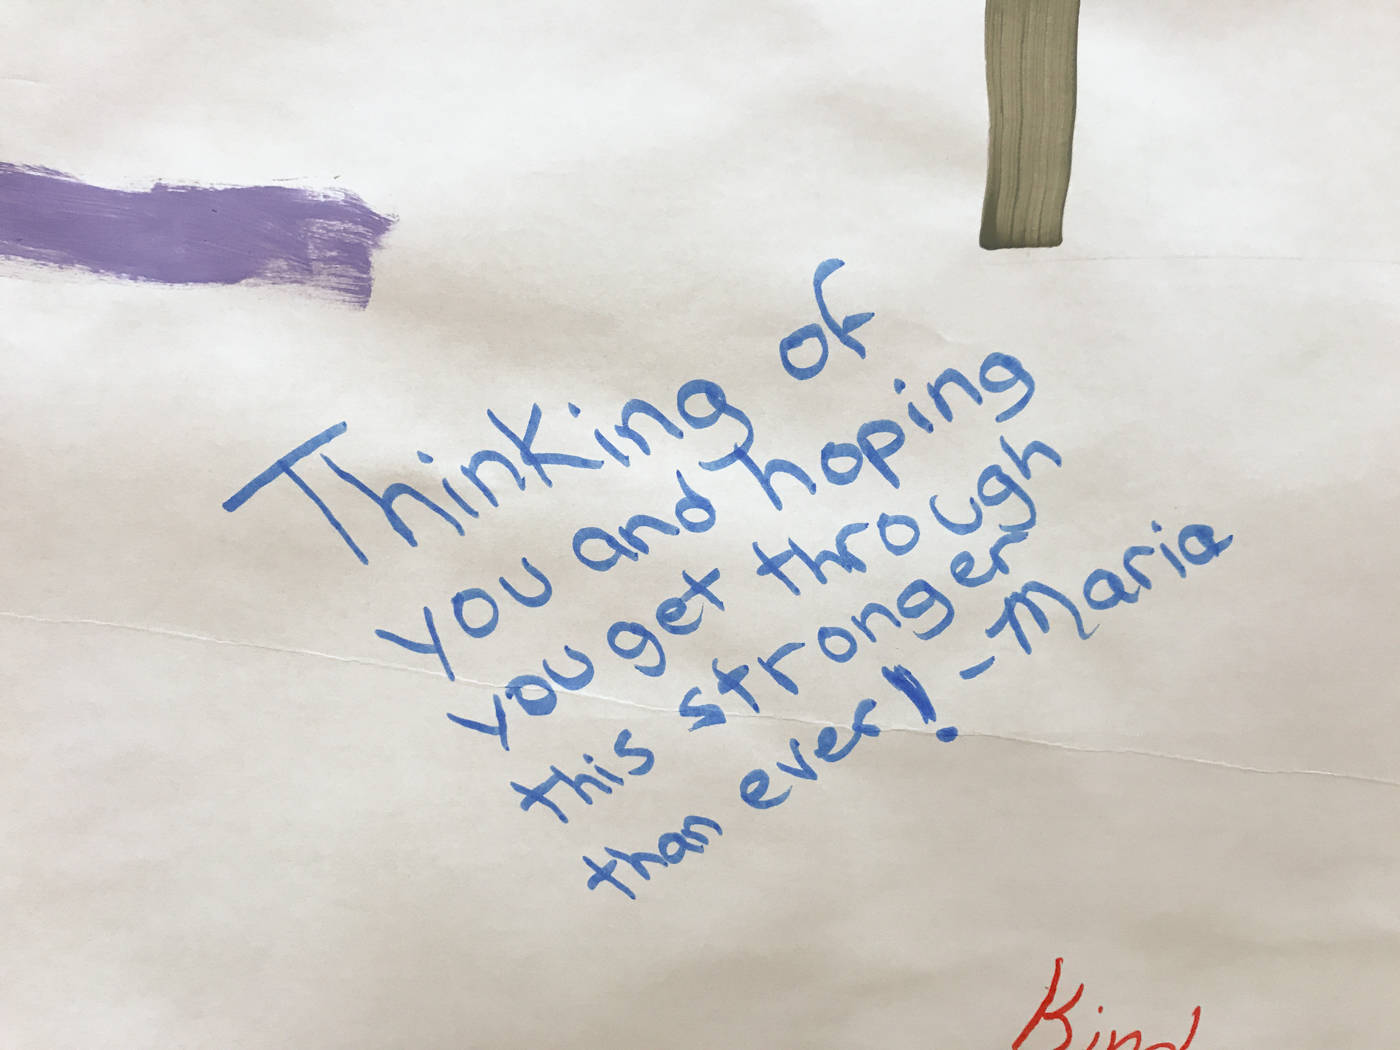 Thinking of
you and hoping
you get through
this stronger
than ever! -Maria
Kind